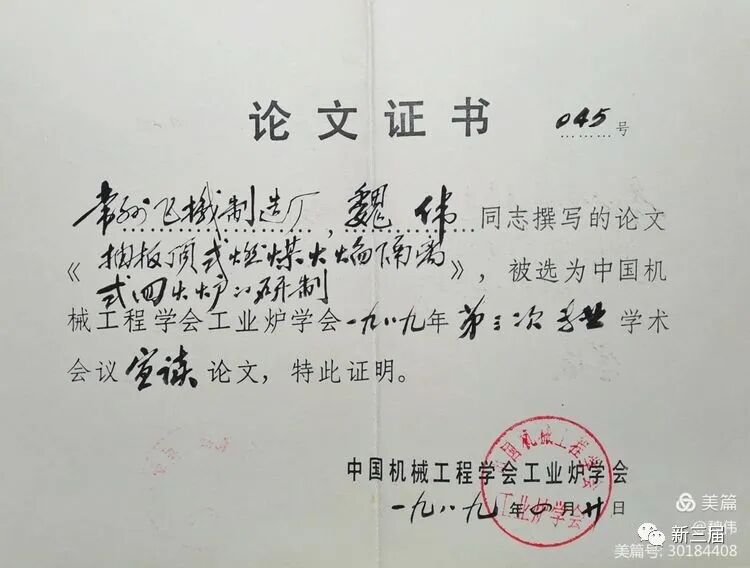 论文证书 045号
常州飞机制造厂，魏伟同志撰写的论文
《抽板顶式燃煤火焰隔离
式四大炉的研制》，被选为中国机
械工程学会工业炉学会一九八九年第三次专业学术
会议宣读论文，特此证明。
中国机械工程学会工业炉学会
一九八九年四月廿日
中国机械工程学会
工业炉学会
美篇
@魏伟
新三届
美篇号: 30184408